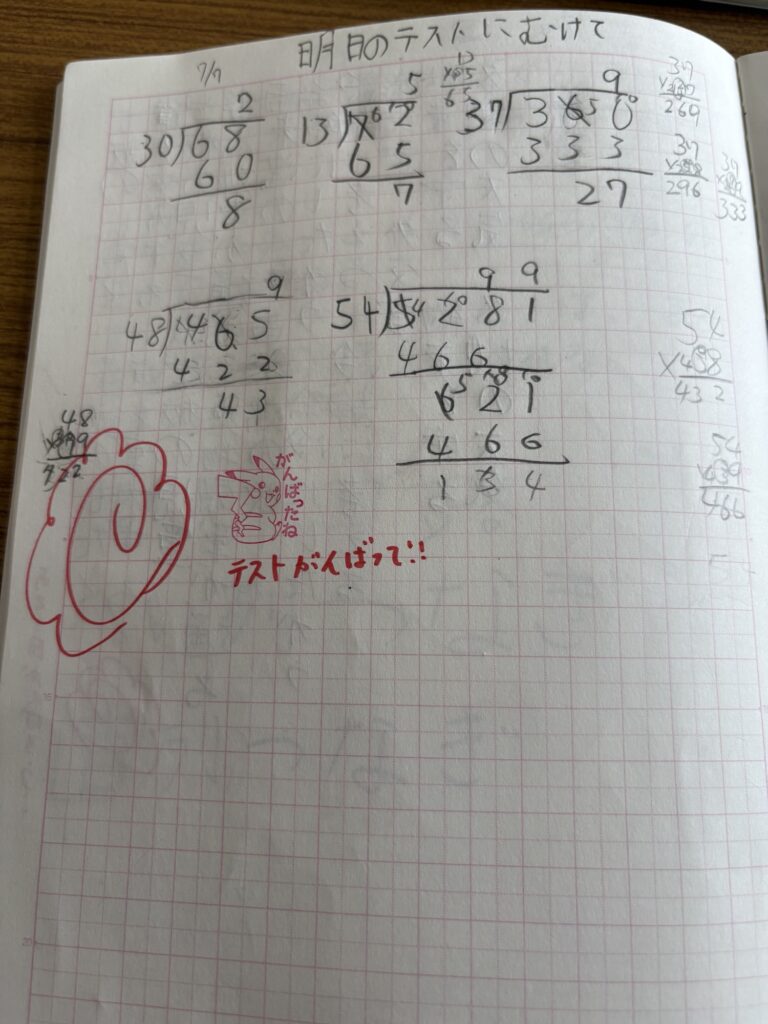 明日のテストにむけて
7/7
2
30)68
60
8
5
13)762
65
7
13
×5
65
9
37)3650
333
27
37
269
37
296
37
333
9
48)465
422
43
48
×9
422
99
54)5281
466
621
466
134
54
×8
432
54
×9
466
がんばったね
テストがんばって!!